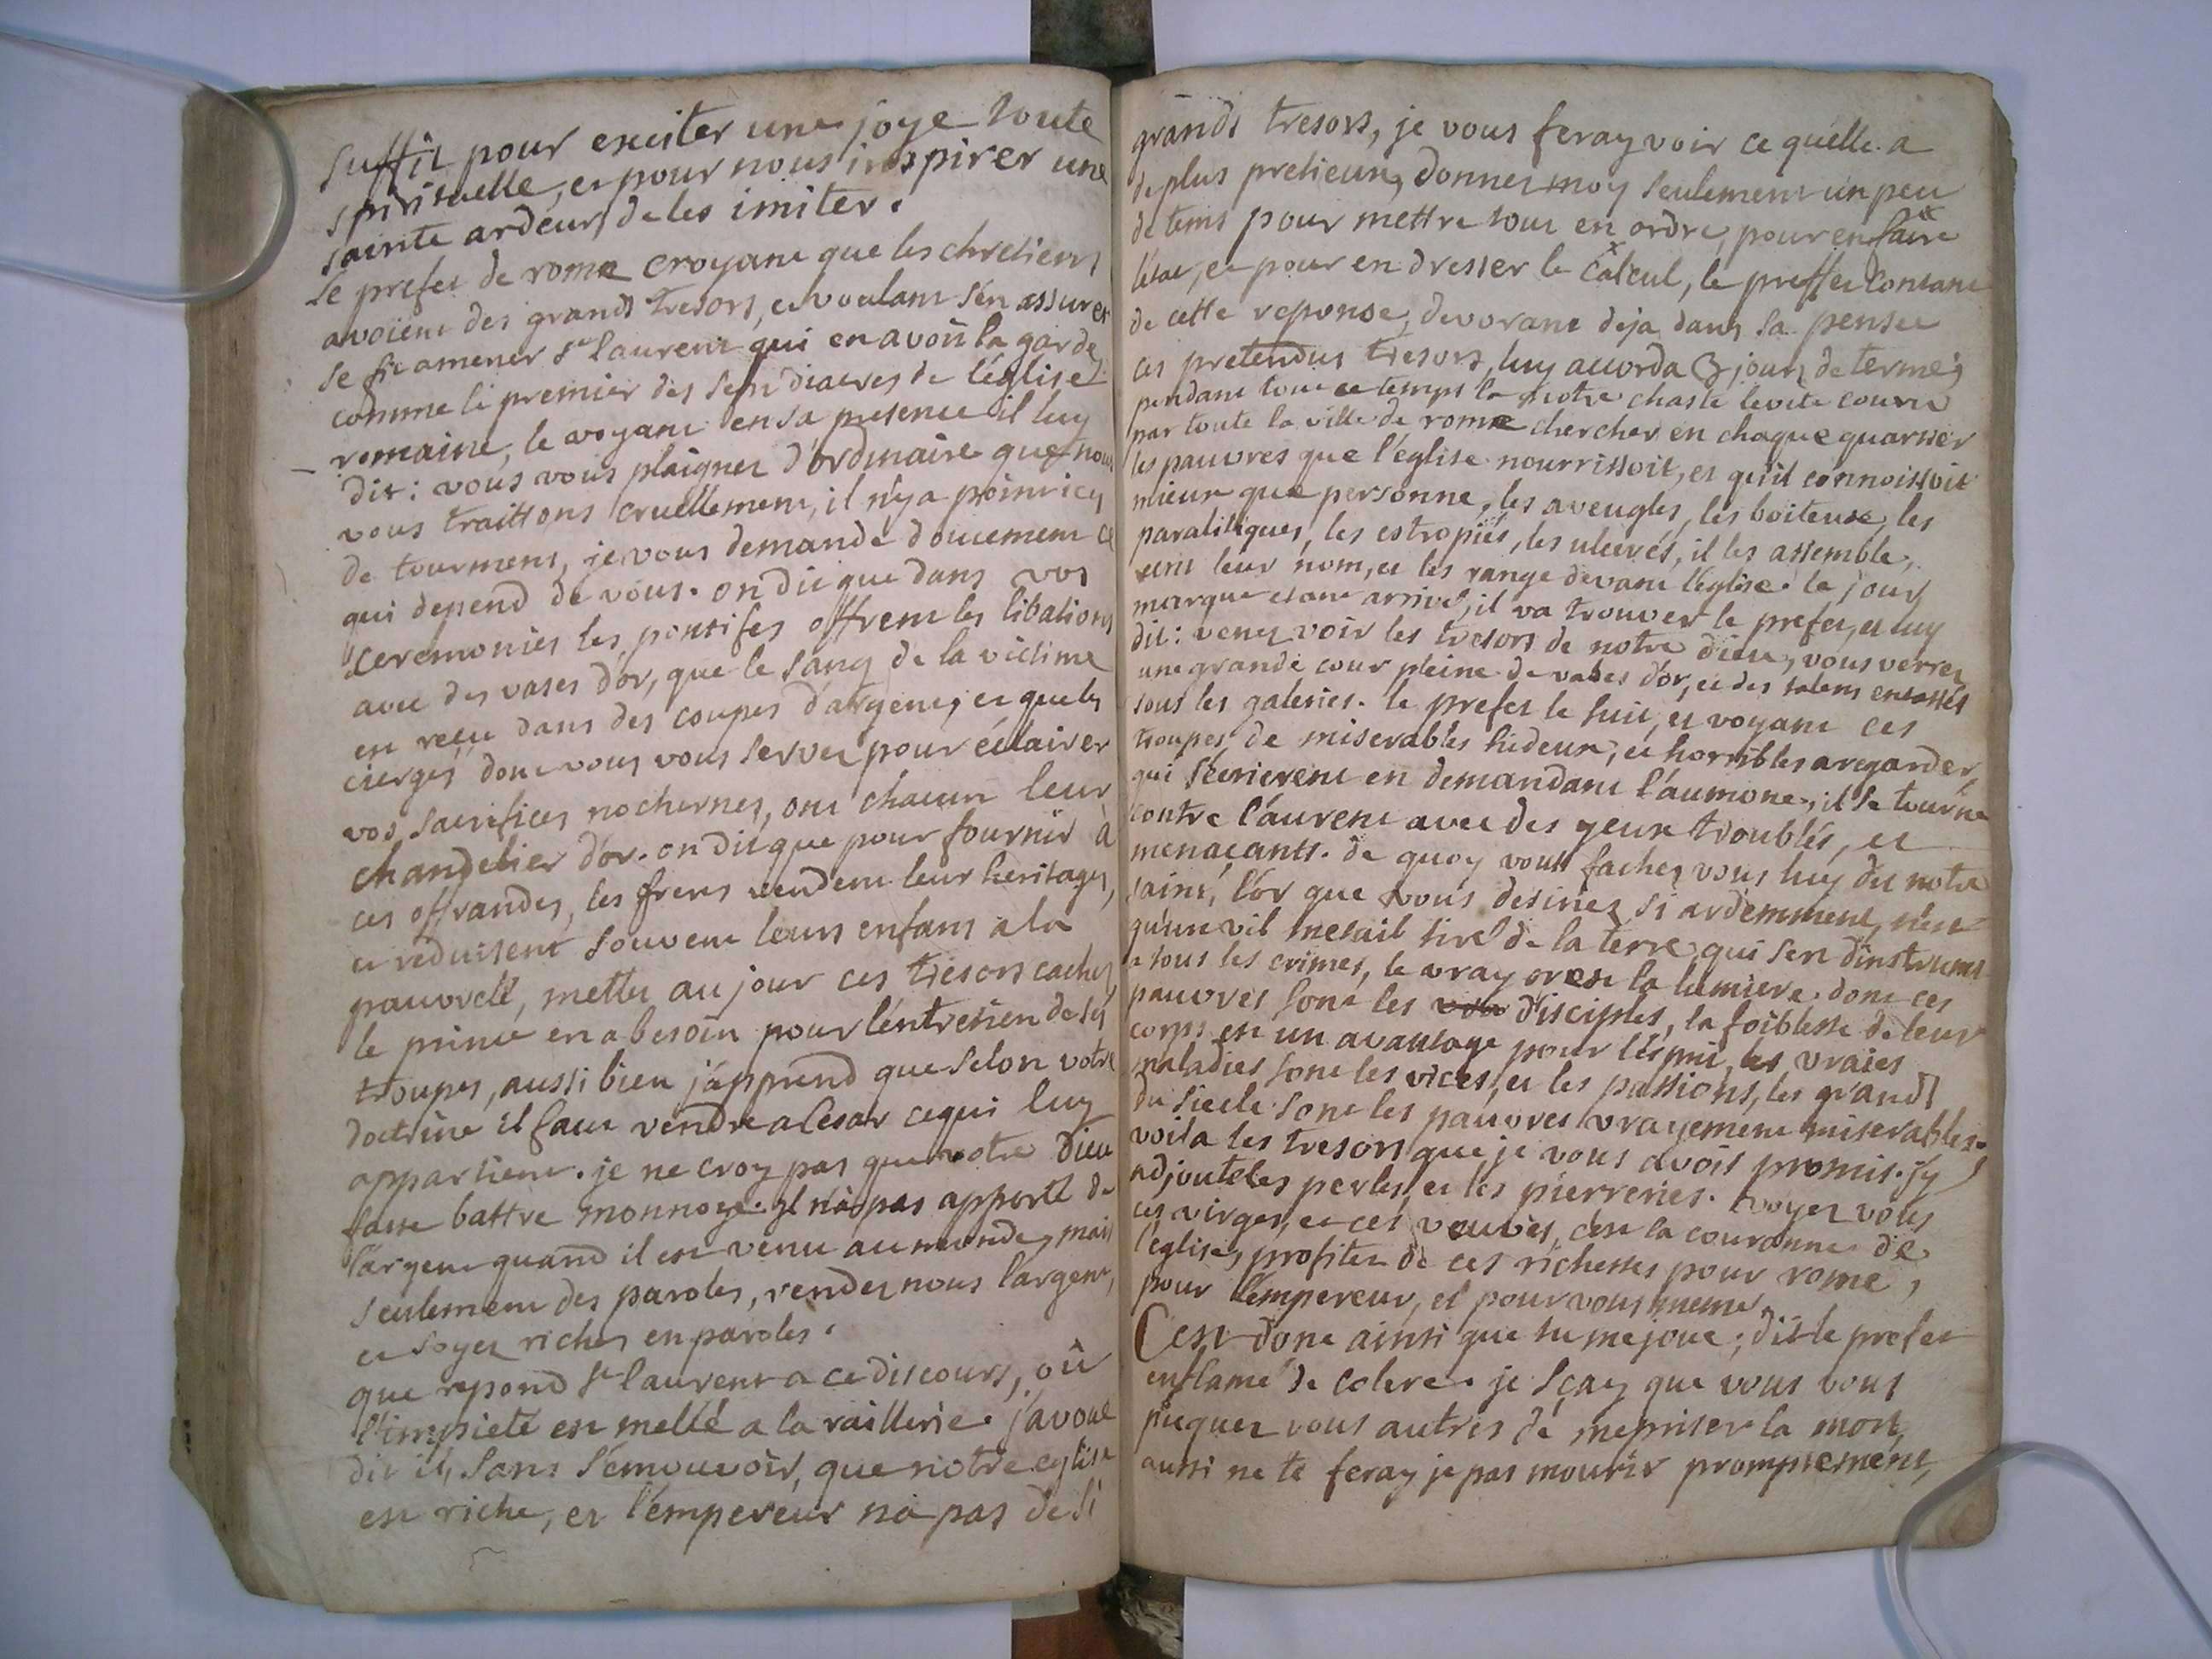 suffit pour exciter une joye toute
spirituelle, et pour nous inspirer une
sainte ardeur de les imiter.
le prefet de rome croyant que les chretiens
avoient des grands tresors, et voulant s'en assurer
se fit amener st laurent qui en avoit la garde
comme le premier des sept diacres de l'église
romaine, le voyant en sa presence il luy
dit: vous vous plaignez d'ordinaire que nous
vous traittons cruellement, il n'y a point icy
de tourment, je vous demande doucement ce
qui depend de vous. on dit que dans vos
ceremonies les pontifes offrent les libations
avec des vases d'or, que le sang de la victime
est reçu dans des coupes d'argent, et que les
cierges dont vous vous servez pour éclairer
vos sacrifices nocturnes, ont chacun leur
chandelier d'or. on dit que pour fournir à
ces offrandes, les freres vendent leur heritages,
et reduisent souvent leurs enfans a la
pauvreté, mettez au jour ces tresors cachés
le prince en a besoin pour l'entretien de ses
troupes, aussi bien j'apprend que selon votre
doctrine il faut rendre a Cesar ce qui luy
appartient. je ne croy pas que votre Dieu
fasse battre monnoye. il n'a pas apporté de
l'argent quand il est venu au monde, mais
seulement des paroles, rendez nous l'argent,
et soyez riches en paroles.
que repond st laurent a ce discours, où
l'impieté est mellé a la raillerie. j'avoue
dit il, sans s'émouvoir, que notre eglise
est riche, et l'empereur n'a pas de si
grands tresors, je vous feray voir ce qu'elle a
de plus pretieux, donnez moy seulement un peu
de tems pour mettre tout en ordre, pour en faire
l'état, et pour en dresser le calcul, le preffet Contant
de cette reponse, devorant deja dans sa pensée
ces pretendus tresors, luy accorda 3 jours de terme;
pendant tout ce temps la notre chaste levite courut
par toute la ville de rome chercher en chaque quartier
les pauvres que l'église nourrissoit, et qu'il connoissoit
mieux que personne, les aveugles, les boiteux, les
paralitiques, les estropiés, les ulcerés, il les assemble,
ecrit leur nom, et les range devant l'église. le jour
marqué etant arrivé, il va trouver le prefet, et luy
dit: venez voir les tresors de notre dieu, vous verrez
une grande cour pleine de vases d'or, et des talens entassés
sous les galeries. le prefet le suit, et voyant ces
troupes de miserables hideux, et horribles a regarder,
qui s'ecrierent en demandant l'aumone, il se tourne
contre laurent avec des yeux troublés, et
menaçants. de quoy vous fachez vous luy dit notre
saint, l'or que vous desirez si ardemment, n'est
qu'un vil metail tiré de la terre qui sert d'instrument
a tous les crimes, le vray or est la lumiere dont ces
pauvres sont les disciples, la foiblesse de leur
corps est un avantage pour l'esprit, les vraies
maladies sont les vices, et les passions, les grands
du siecle sont les pauvres vrayement miserables.
voila les tresors que je vous avois promis. j'y
adjoute les perles, et les pierreries. voyez vous
ces virges, et ces veuves, c'est la couronne de
l'église, profitez de ces richesses pour rome,
pour l'empereur, et pour vous meme.
C'est donc ainsi que tu me joue; dit le prefet
enflamé de colere. je sçay que vous vous
picquez vous autres de mepriser la mort,
aussi ne te feray je pas mourir promptement,